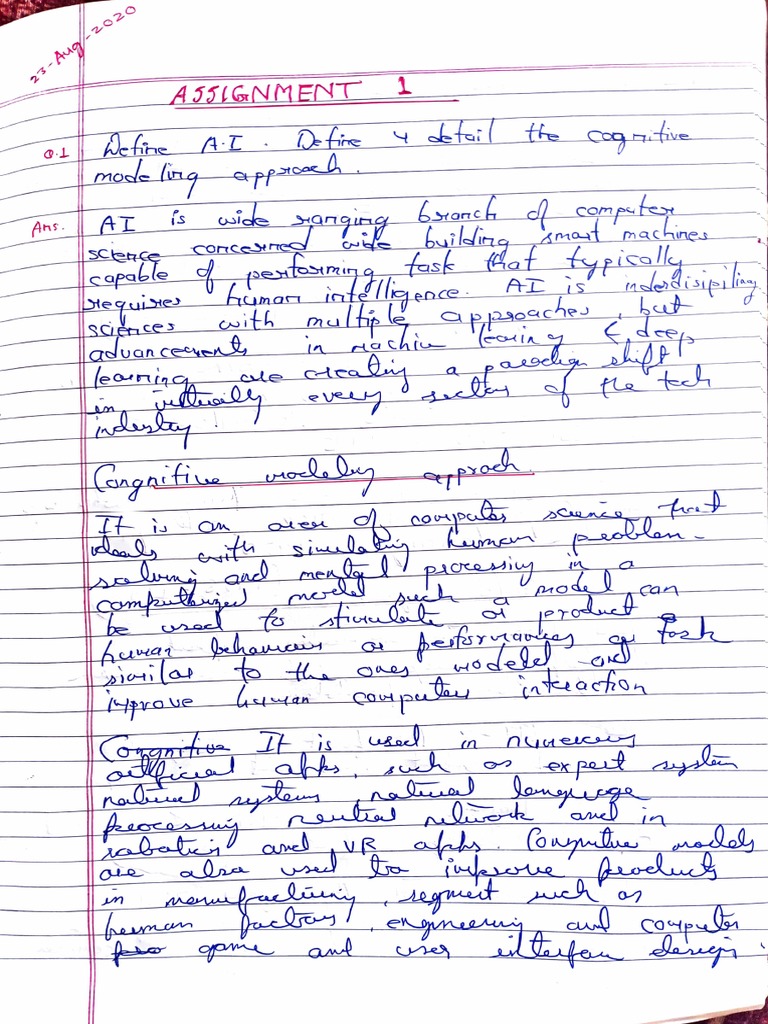 23-Aug-2020
ASSIGNMENT 1
Q.1 Define A.I. Define & detail the cognitive
modeling approach.
Ans. AI is wide ranging branch of computer
science concerned wide building smart machines
capable of performing task that typically
requires human intelligence. AI is inderdisipiling
sciences with multiple approaches, but
advancements in machine learing & deep
learning are creating a paradign shift
in virtually every sector of the tech
industry.
Congnitive modeling approch.
It is an area of computer science that
deals with simulating human problem-
solving and mental processing in a
computerized model such a model can
be used to stimulate or product
human behaviour or performances or task
similar to the ones modeled and
improve human computer interaction
Congnitive It is used in numerous
artificial apps, such as expert system
natural systems, natural language
processing neutral network and in
robotics and VR apps. Congnitive models
are also used to improve products
in manufacturing, segment such as
human factors, engineering and computer
game and user interface design.